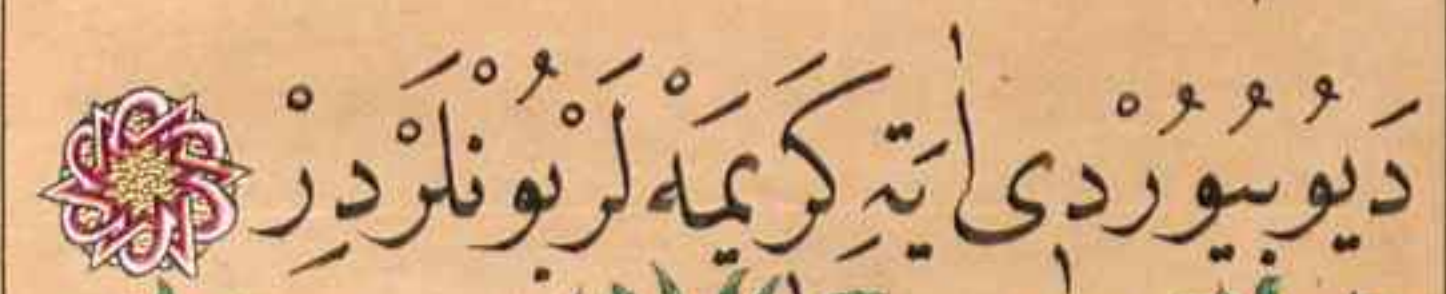 دَيُو بُيُورْدِى اٰيَةِ كَرِيمَهْ لَرْ بُونْلَرْدِرْ